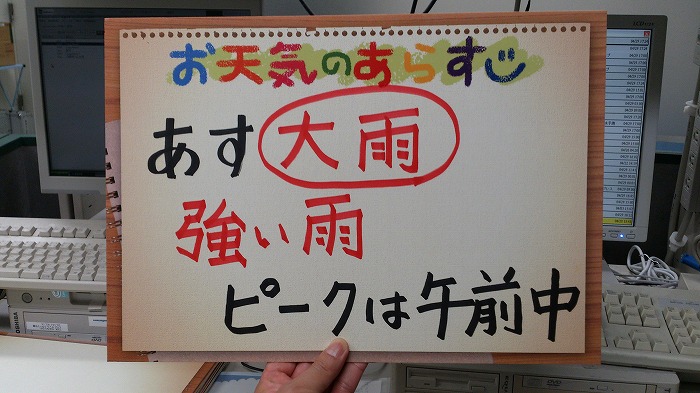 お天気のあらすじ
あす大雨
強い雨
ピークは午前中
TOSHIBA